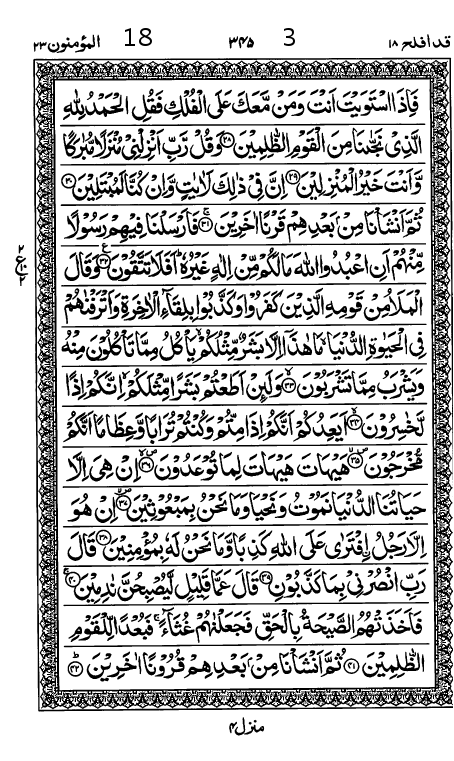 قد افلح ١٨ 3 ٣٤٥ 18 المؤمنون ٢٣
فَاِذَا اسْتَوَيْتَ اَنْتَ وَمَنْ مَّعَكَ عَلَى الْفُلْكِ فَقُلِ الْحَمْدُ لِلّٰهِ
الَّذِىْ نَجّٰىنَا مِنَ الْقَوْمِ الظّٰلِمِيْنَ ﴿٢٨﴾ وَقُلْ رَّبِّ اَنْزِلْنِىْ مُنْزَلًا مُّبٰرَكًا
وَّاَنْتَ خَيْرُ الْمُنْزِلِيْنَ ﴿٢٩﴾ اِنَّ فِىْ ذٰلِكَ لَاٰيٰتٍ وَّاِنْ كُنَّا لَمُبْتَلِيْنَ ﴿٣٠﴾
ثُمَّ اَنْشَاْنَا مِنْۢ بَعْدِهِمْ قَرْنًا اٰخَرِيْنَ ﴿٣١﴾ فَاَرْسَلْنَا فِيْهِمْ رَسُوْلًا
مِّنْهُمْ اَنِ اعْبُدُوا اللّٰهَ مَا لَكُمْ مِّنْ اِلٰهٍ غَيْرُهٗ ؕ اَفَلَا تَتَّقُوْنَ ﴿٣٢﴾ وَقَالَ
الْمَلَاُ مِنْ قَوْمِهِ الَّذِيْنَ كَفَرُوْا وَكَذَّبُوْا بِلِقَآءِ الْاٰخِرَةِ وَاَتْرَفْنٰهُمْ
فِى الْحَيٰوةِ الدُّنْيَا ۙ مَا هٰذَآ اِلَّا بَشَرٌ مِّثْلُكُمْ ۙ يَاْكُلُ مِمَّا تَاْكُلُوْنَ مِنْهُ
وَيَشْرَبُ مِمَّا تَشْرَبُوْنَ ﴿٣٣﴾ وَلَئِنْ اَطَعْتُمْ بَشَرًا مِّثْلَكُمْ ۙ اِنَّكُمْ اِذًا
لَّخٰسِرُوْنَ ﴿٣٤﴾ اَيَعِدُكُمْ اَنَّكُمْ اِذَا مِتُّمْ وَكُنْتُمْ تُرَابًا وَّعِظَامًا اَنَّكُمْ
مُّخْرَجُوْنَ ﴿٣٥﴾ هَيْهَاتَ هَيْهَاتَ لِمَا تُوْعَدُوْنَ ﴿٣٦﴾ اِنْ هِىَ اِلَّا
حَيَاتُنَا الدُّنْيَا نَمُوْتُ وَنَحْيَا وَمَا نَحْنُ بِمَبْعُوْثِيْنَ ﴿٣٧﴾ اِنْ هُوَ
اِلَّا رَجُلُ اۨفْتَرٰى عَلَى اللّٰهِ كَذِبًا وَّمَا نَحْنُ لَهٗ بِمُؤْمِنِيْنَ ﴿٣٨﴾ قَالَ
رَبِّ انْصُرْنِىْ بِمَا كَذَّبُوْنِ ﴿٣٩﴾ قَالَ عَمَّا قَلِيْلٍ لَّيُصْبِحُنَّ نٰدِمِيْنَ ﴿٤٠﴾
فَاَخَذَتْهُمُ الصَّيْحَةُ بِالْحَقِّ فَجَعَلْنٰهُمْ غُثَآءً ۚ فَبُعْدًا لِّلْقَوْمِ
الظّٰلِمِيْنَ ﴿٤١﴾ ثُمَّ اَنْشَاْنَا مِنْۢ بَعْدِهِمْ قُرُوْنًا اٰخَرِيْنَ ﴿٤٢﴾
منزل ٤